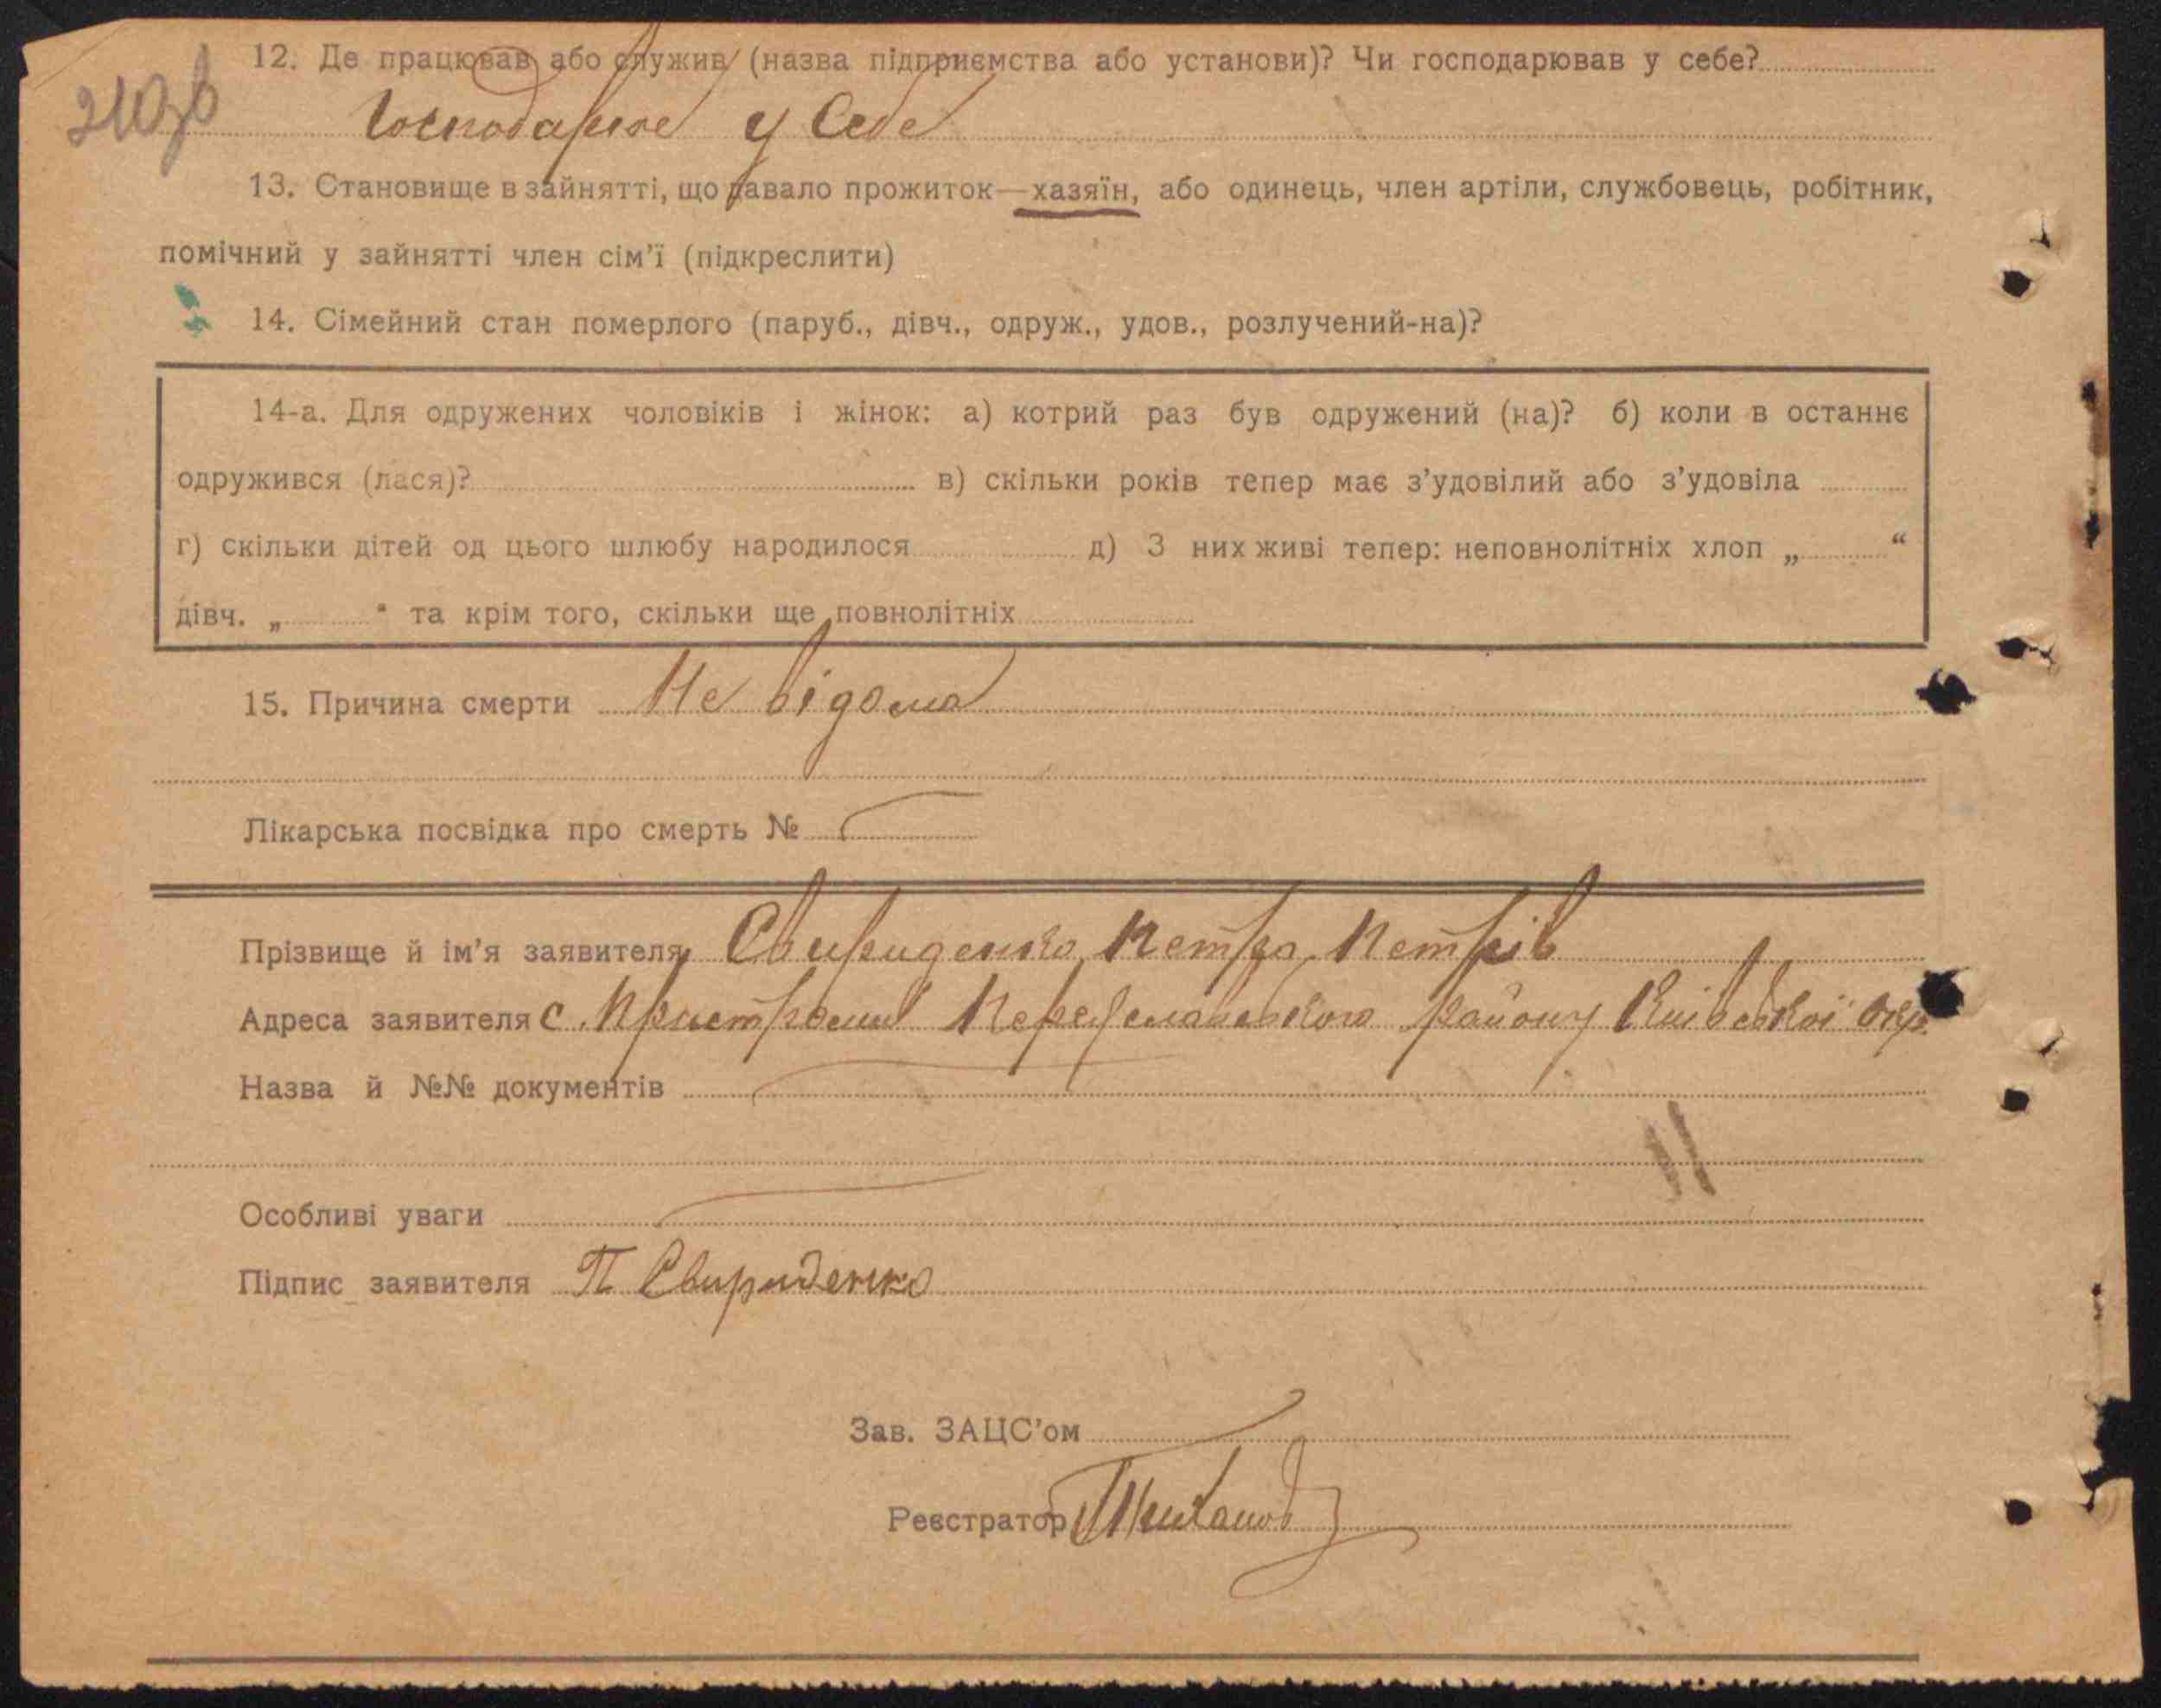 210зв
12. Де працював або служив (назва підприємства або установи)? Чи господарював у себе?
Господарює у себе
13. Становище в зайнятті, що давало прожиток—хазяїн, або одинець, член артіли, службовець, робітник,
помічний у зайнятті член сім'ї (підкреслити)
14. Сімейний стан померлого (паруб., дівч., одруж., удов., розлучений-на)?
14-а. Для одружених чоловіків і жінок: а) котрий раз був одружений (на)? б) коли в останнє
одружився (лася)? в) скільки років тепер має з'удовілий або з'удовіла
г) скільки дітей од цього шлюбу народилося д) З них живі тепер: неповнолітніх хлоп „ “
дівч. „ “ та крім того, скільки ще повнолітніх
15. Причина смерти Не відома
Лікарська посвідка про смерть №
Прізвище й ім'я заявителя Свириденко Петро Петрів
Адреса заявителя с. Пристроми Переяславського району Київської окр.
Назва й №№ документів
Особливі уваги
Підпис заявителя П Свириденко
Зав. ЗАЦС'ом
Реєстратор